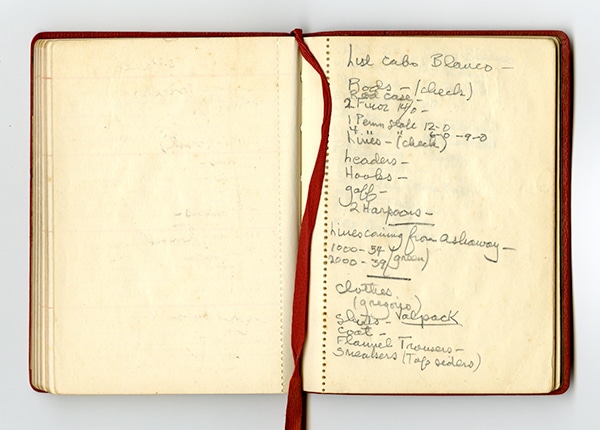 List Cabo Blanco -
Rods - (check)
Rod case -
2 Finor 14/0 -
1 Penn 12-0
4 " 6-0 - 9-0
Lines - (check)
Leaders -
Hooks -
gaff -
2 Harpoons -
Lines coming from Ashaway -
1000 - 54
2000 - 39 (green)
Clothes
(gregorio)
Shirts - Valpack
Coat -
Flannel Trousers -
Sneakers (Top siders)